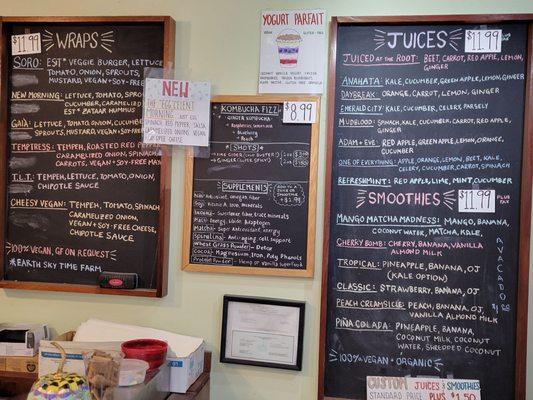 11.99
WRAPS
SORO: EST* VEGGIE BURGER, LETTUCE,
TOMATO, ONION, SPROUTS,
MUSTARD, VEGAN + SOY-FREE
NEW MORNING: LETTUCE, TOMATO, SPROUTS,
CUCUMBER, CARAMELIZED ONIONS
+ EST* ZA'ATAR HUMMUS
GAIA: LETTUCE, TOMATO, ONION, CUCUMBER
SPROUTS, MUSTARD, VEGAN + SOY-FREE
TEMPTRESS: TEMPEH, ROASTED RED PEPPER
CARAMELIZED ONIONS, SPINACH
VEGAN + SOY-FREE MAYO
T.L.T: TEMPEH, LETTUCE, TOMATO, ONION,
CHIPOTLE SAUCE
CHEESY VEGAN: TEMPEH, TOMATO, SPINACH,
CARAMELIZED ONION,
VEGAN + SOY-FREE CHEESE,
CHIPOTLE SAUCE
100% VEGAN, GF ON REQUEST
*EARTH SKY TIME FARM
NEW
THE "EGG"CELENT
MORNING
YOGURT PARFAIT
KOMBUCHA FIZZ
$8.99
+ GINGER KOMBUCHA
+ Blueberry
+ Peach
*{SHOTS}*
SUPPLEMENTS
ADD TO A
SMOOTHIE
+ $1.99
Maca:
Matcha:
Spirulina
Wheat Grass Powder - Detox
Cacao: Magnesium, Iron, Poly Phenols
Protein Powder - Hemp or Vanilla Superfood
JUICES
11.99
JUICED AT THE ROOT: BEET, CARROT, RED APPLE, LEMON,
GINGER
ANAHATA: KALE, CUCUMBER, GREEN APPLE, LEMON, GINGER
DAYBREAK: ORANGE, CARROT, LEMON, GINGER
EMERALD CITY: KALE, CUCUMBER, CELERY, PARSELY
MUDBLOOD: SPINACH, KALE, CUCUMBER, CARROT, RED APPLE,
GINGER
ADAM + EVE: RED APPLE, GREEN APPLE, LEMON, ORANGE,
CUCUMBER
ONE OF EVERYTHING: APPLE, ORANGE, LEMON, BEET, KALE,
CELERY, CUCUMBER, CARROT, SPINACH
REFRESHIMINT: RED APPLE, LIME, MINT, CUCUMBER
SMOOTHIES
$11.99
PLUS
TAX
MANGO MATCHA MADNESS: MANGO, BANANA,
COCONUT WATER, MATCHA, KALE,
CHERRY BOMB: CHERRY, BANANA, VANILLA
ALMOND MILK
TROPICAL: PINEAPPLE, BANANA, OJ
(KALE OPTION)
CLASSIC: STRAWBERRY, BANANA, OJ
PEACH CREAMSICLE: PEACH, BANANA, OJ,
VANILLA ALMOND MILK
PIÑA COLADA: PINEAPPLE, BANANA,
COCONUT MILK, COCONUT
WATER, SHREDDED COCONUT
AVACADO
100% VEGAN + ORGANIC
CUSTOM JUICES + SMOOTHIES
STANDARD PRICE PLUS $1.50